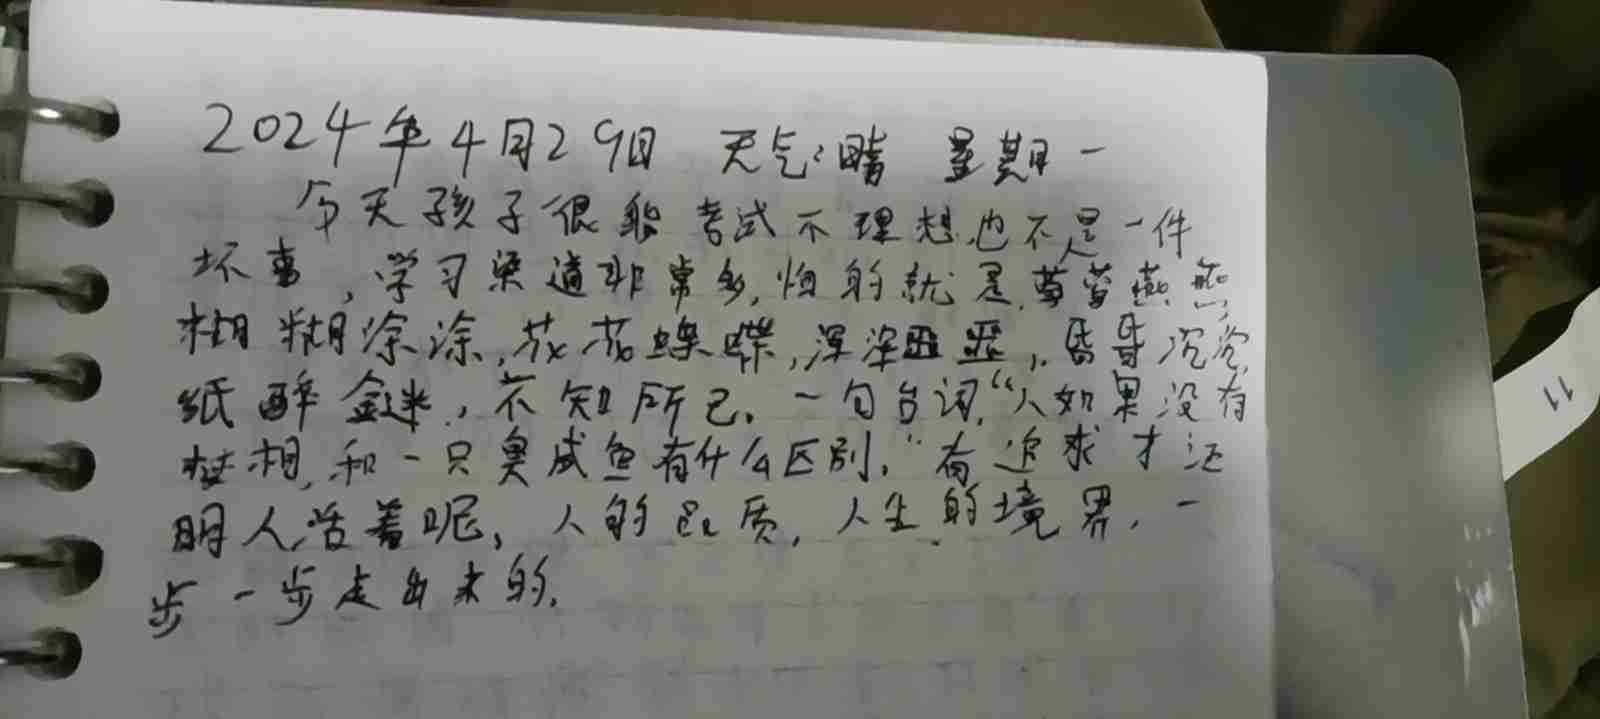 2024年4月29日 天气:晴 星期一
今天孩子很能考试不理想也不是一件
坏事,学习渠道非常多,怕的就是,莺莺燕燕,
糊糊涂涂,花花蝶蝶,浑浑噩噩,昏昏沉沉,
纸醉金迷,不知所已。一句台词,“人如果没有
梦想,和一只臭咸鱼有什么区别。”有追求才证
明人活着呢,人的品质,人生的境界,一
步一步走出来的。
11